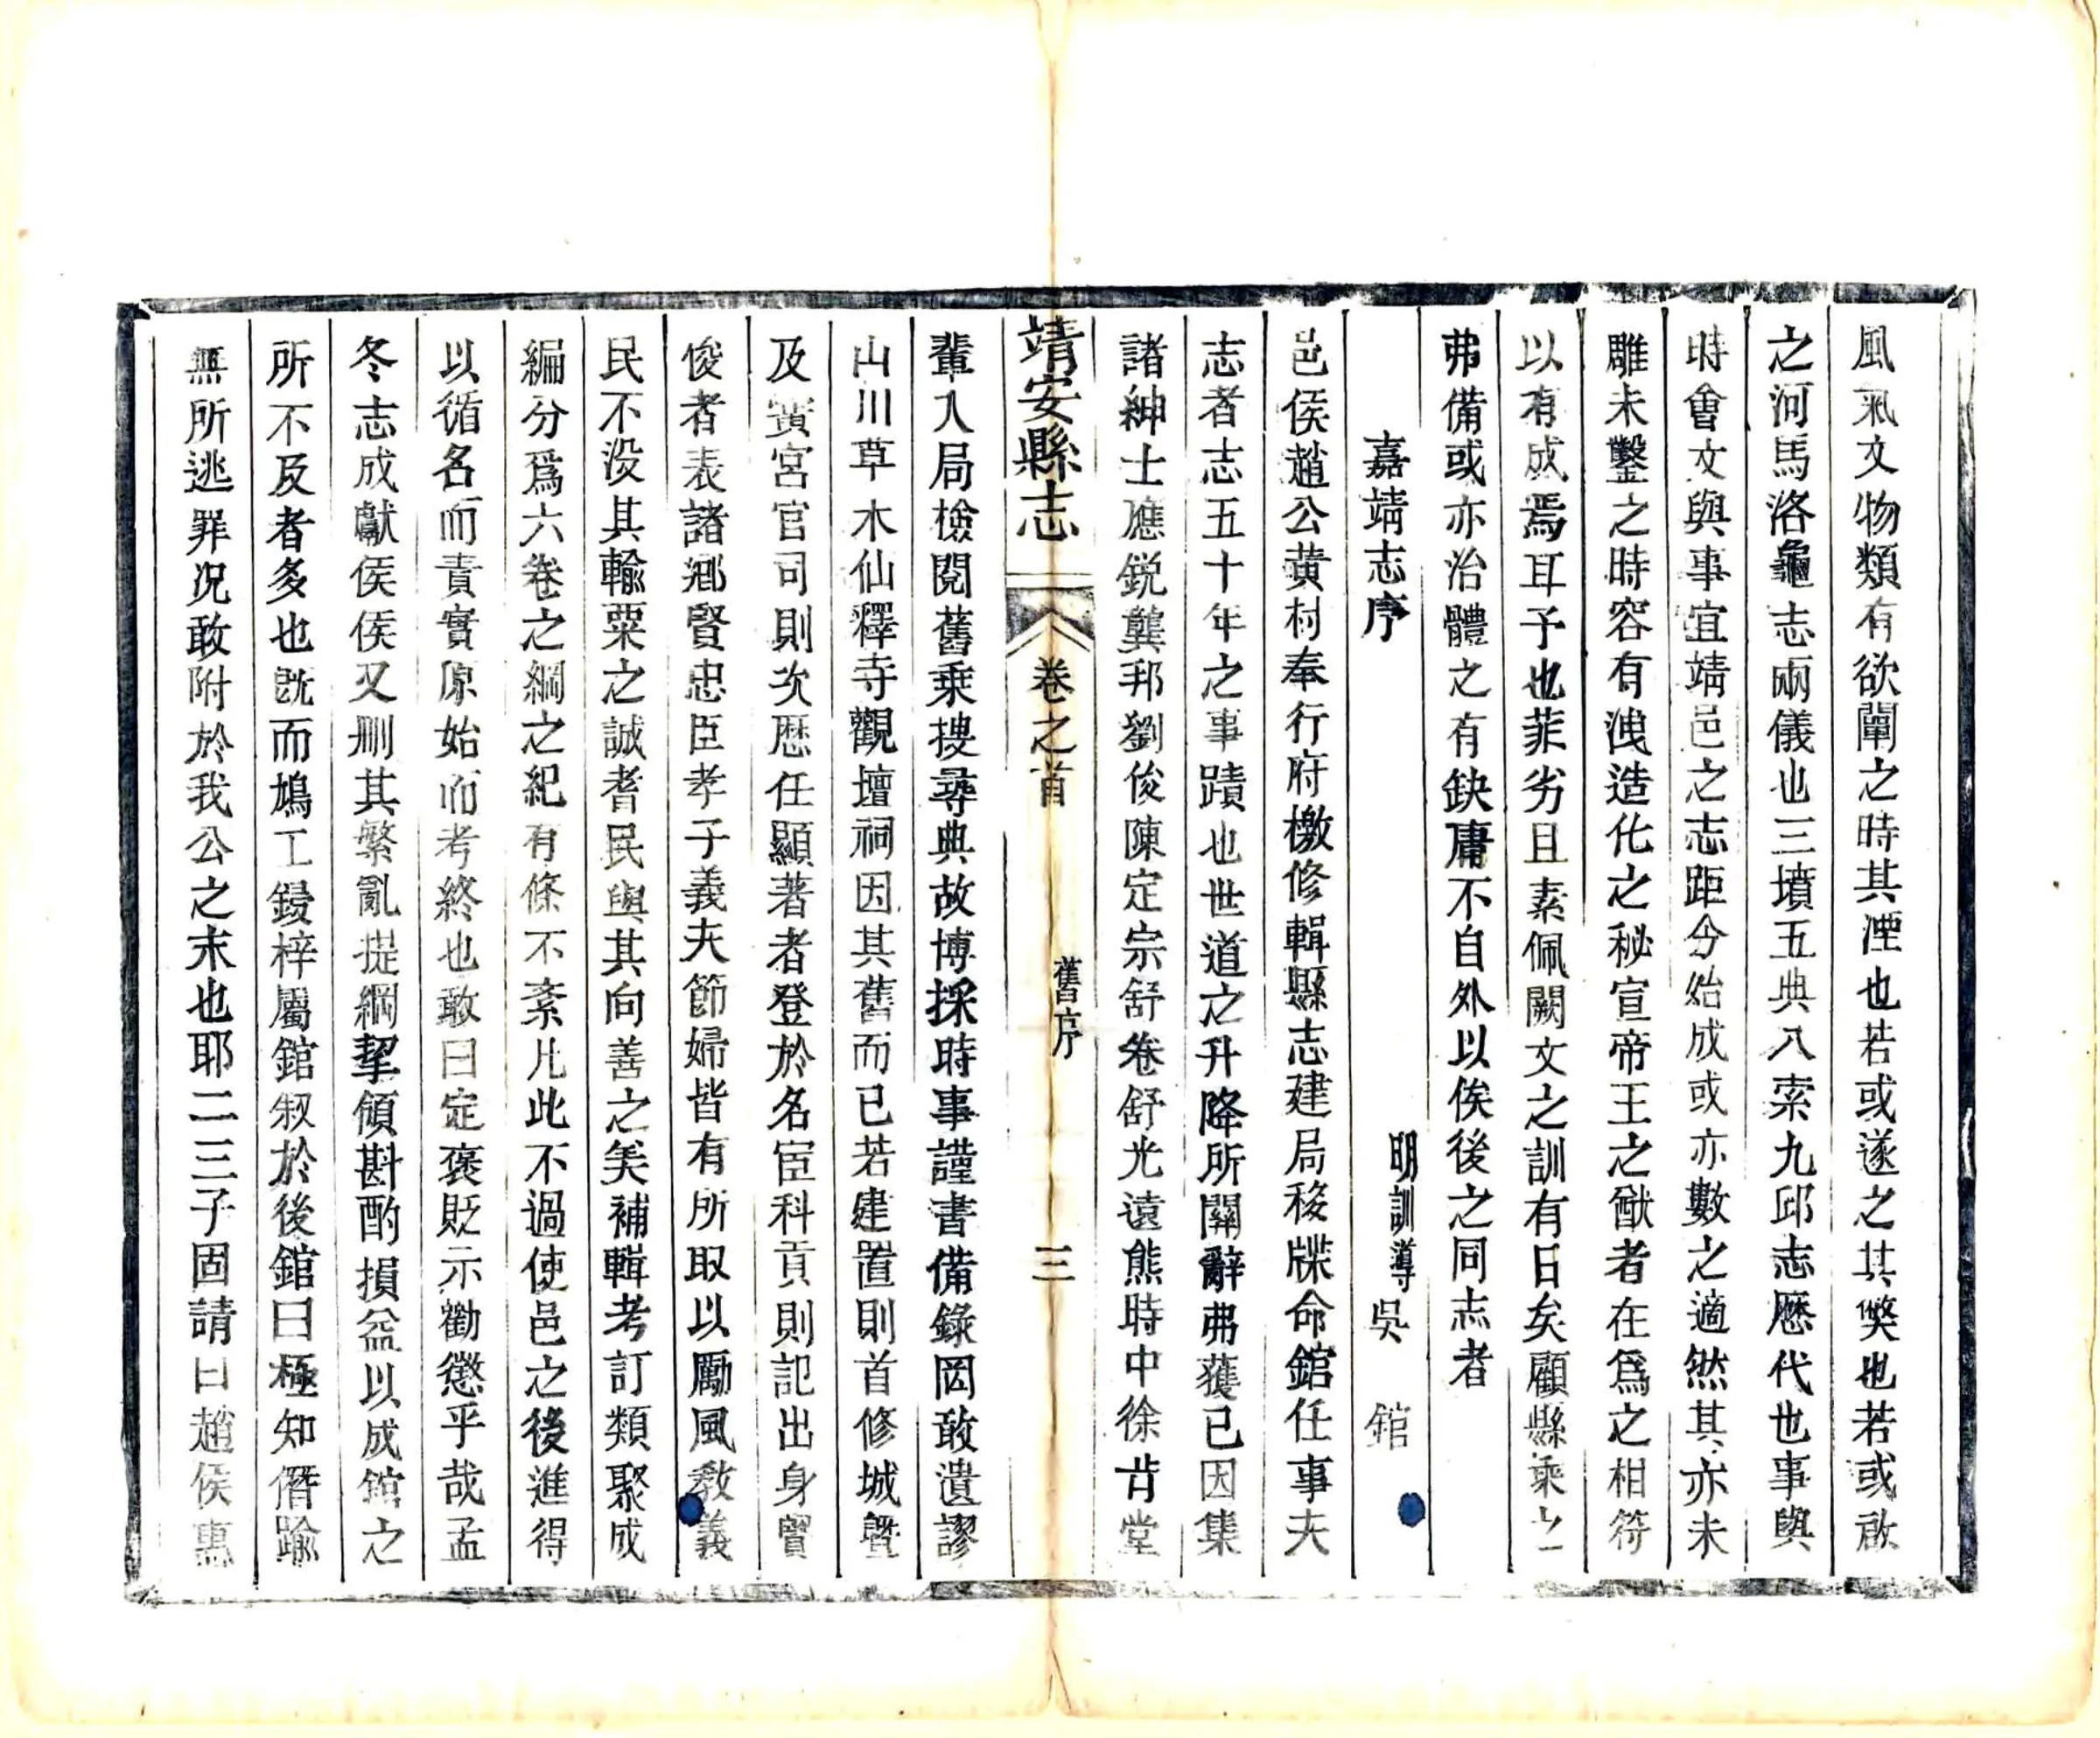 風氣文物類有欲闡之時其湮也若或遂之其獘也若或啟
之河馬洛龜志兩儀也三墳五典八索九邱志歷代也事與
時會文與事宜靖邑之志距今始成或亦數之適然其亦未
雕未鑿之時容有洩造化之秘宣帝王之猷者在為之相符
以有成焉耳予也菲劣且素佩闕文之訓有日矣顧縣乘之
弗備或亦治體之有缺庸不自外以俟後之同志者
嘉靖志序
明訓導吳 錧
邑侯趙公黄村奉行府檄修輯縣志建局移牒命錧任事夫
志者志五十年之事蹟也世道之升降所關辭弗獲已因集
諸紳士應鋭龔邦劉俊陳定宗舒卷舒光遠熊時中徐肯堂
靖安縣志 卷之首 舊序 三
輩入局檢閱舊乘搜尋典故博採時事謹書備錄罔敢遺謬
山川草木仙釋寺觀壇祠因其舊而已若建置則首修城曁
及黌宮官司則次歷任顯著者登於名宦科貢則記出身賓
俊者表諸鄉賢忠臣孝子義夫節婦皆有所取以勵風敎義
民不没其輸粟之誠耆民與其向善之美補輯考訂類聚成
編分爲六卷之綱之紀有條不紊凡此不過使邑之後進得
以循名而責實原始而考終也敢曰定褒貶示勸懲乎哉孟
冬志成獻侯侯又刪其繁亂提綱挈領斟酌損益以成錧之
所不及者多也旣而鳩工鋟梓屬錧叙於後錧曰極知僭踰
無所逃罪况敢附於我公之末也耶二三子固請曰趙侯惠